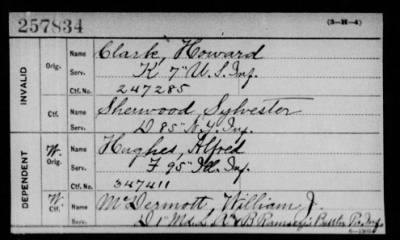 257834
(3-H-4)
INVALID
Orig.
Name Clark, Howard
Serv. K 7" U.S. Inf.
Ctf. No. 247285
Ctf.
Name Sherwood, Sylvester
Serv. D 85" N.Y. Inf.
DEPENDENT
W.
Orig.
Name Hughes, Alfred
Serv. F 95" Ill. Inf.
Ctf. No. 347411
W.
Ctf.
Name McDermott, William J.
Serv. D 1" Md. L. B Battery